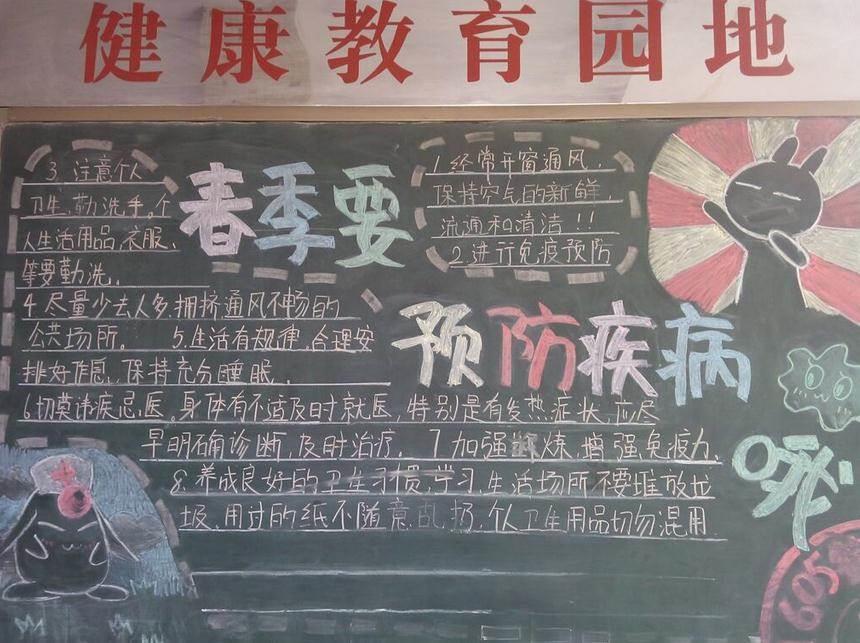 健康教育园地
春季要
预防疾病
1.经常开窗通风,
保持空气的新鲜
流通和清洁!!
2.进行免疫预防
3.注意个人
卫生,勤洗手。个
人生活用品,衣服、
等要勤洗.
4.尽量少去人多,拥挤通风不畅的
公共场所。 5.生活有规律,合理安
排好作息,保持充分睡眠.
6.切莫讳疾忌医。身体有不适及时就医,特别是有发热症状,应尽
早明确诊断,及时治疗. 7加强锻炼,增强免疫力、
8.养成良好的卫生习惯,学习,生活场所不要堆放垃
圾,用过的纸不随意乱扔,个人卫生用品切勿混用.
605